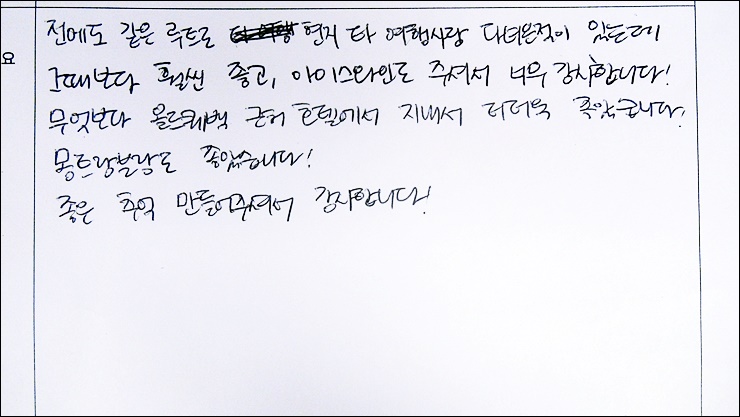 전에도 같은 루트로 현지 타 여행사랑 다녀온적이 있는데
그때보다 훨씬 좋고, 아이스와인도 주셔서 너무 감사합니다!
무엇보다 올드퀘벡 근처 호텔에서 지내서 더더욱 좋았습니다!
몽트랑블랑도 좋았습니다!
좋은 추억 만들어주셔서 감사합니다!
요